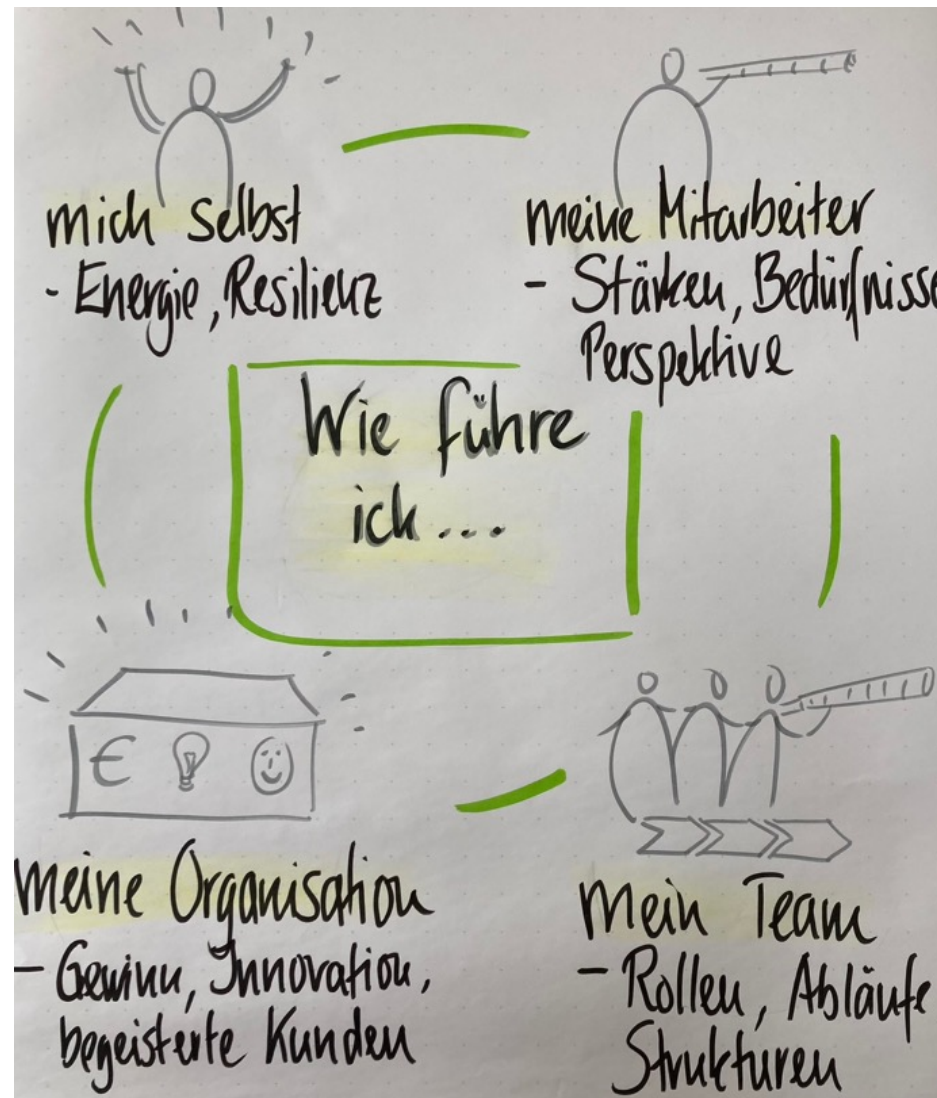 mich selbst
- Energie, Resilienz
meine Mitarbeiter
- Stärken, Bedürfnisse
Perspektive
Wie führe
ich...
meine Organisation
- Gewinn, Innovation,
begeisterte Kunden
mein Team
- Rollen, Abläufe
Strukturen
€